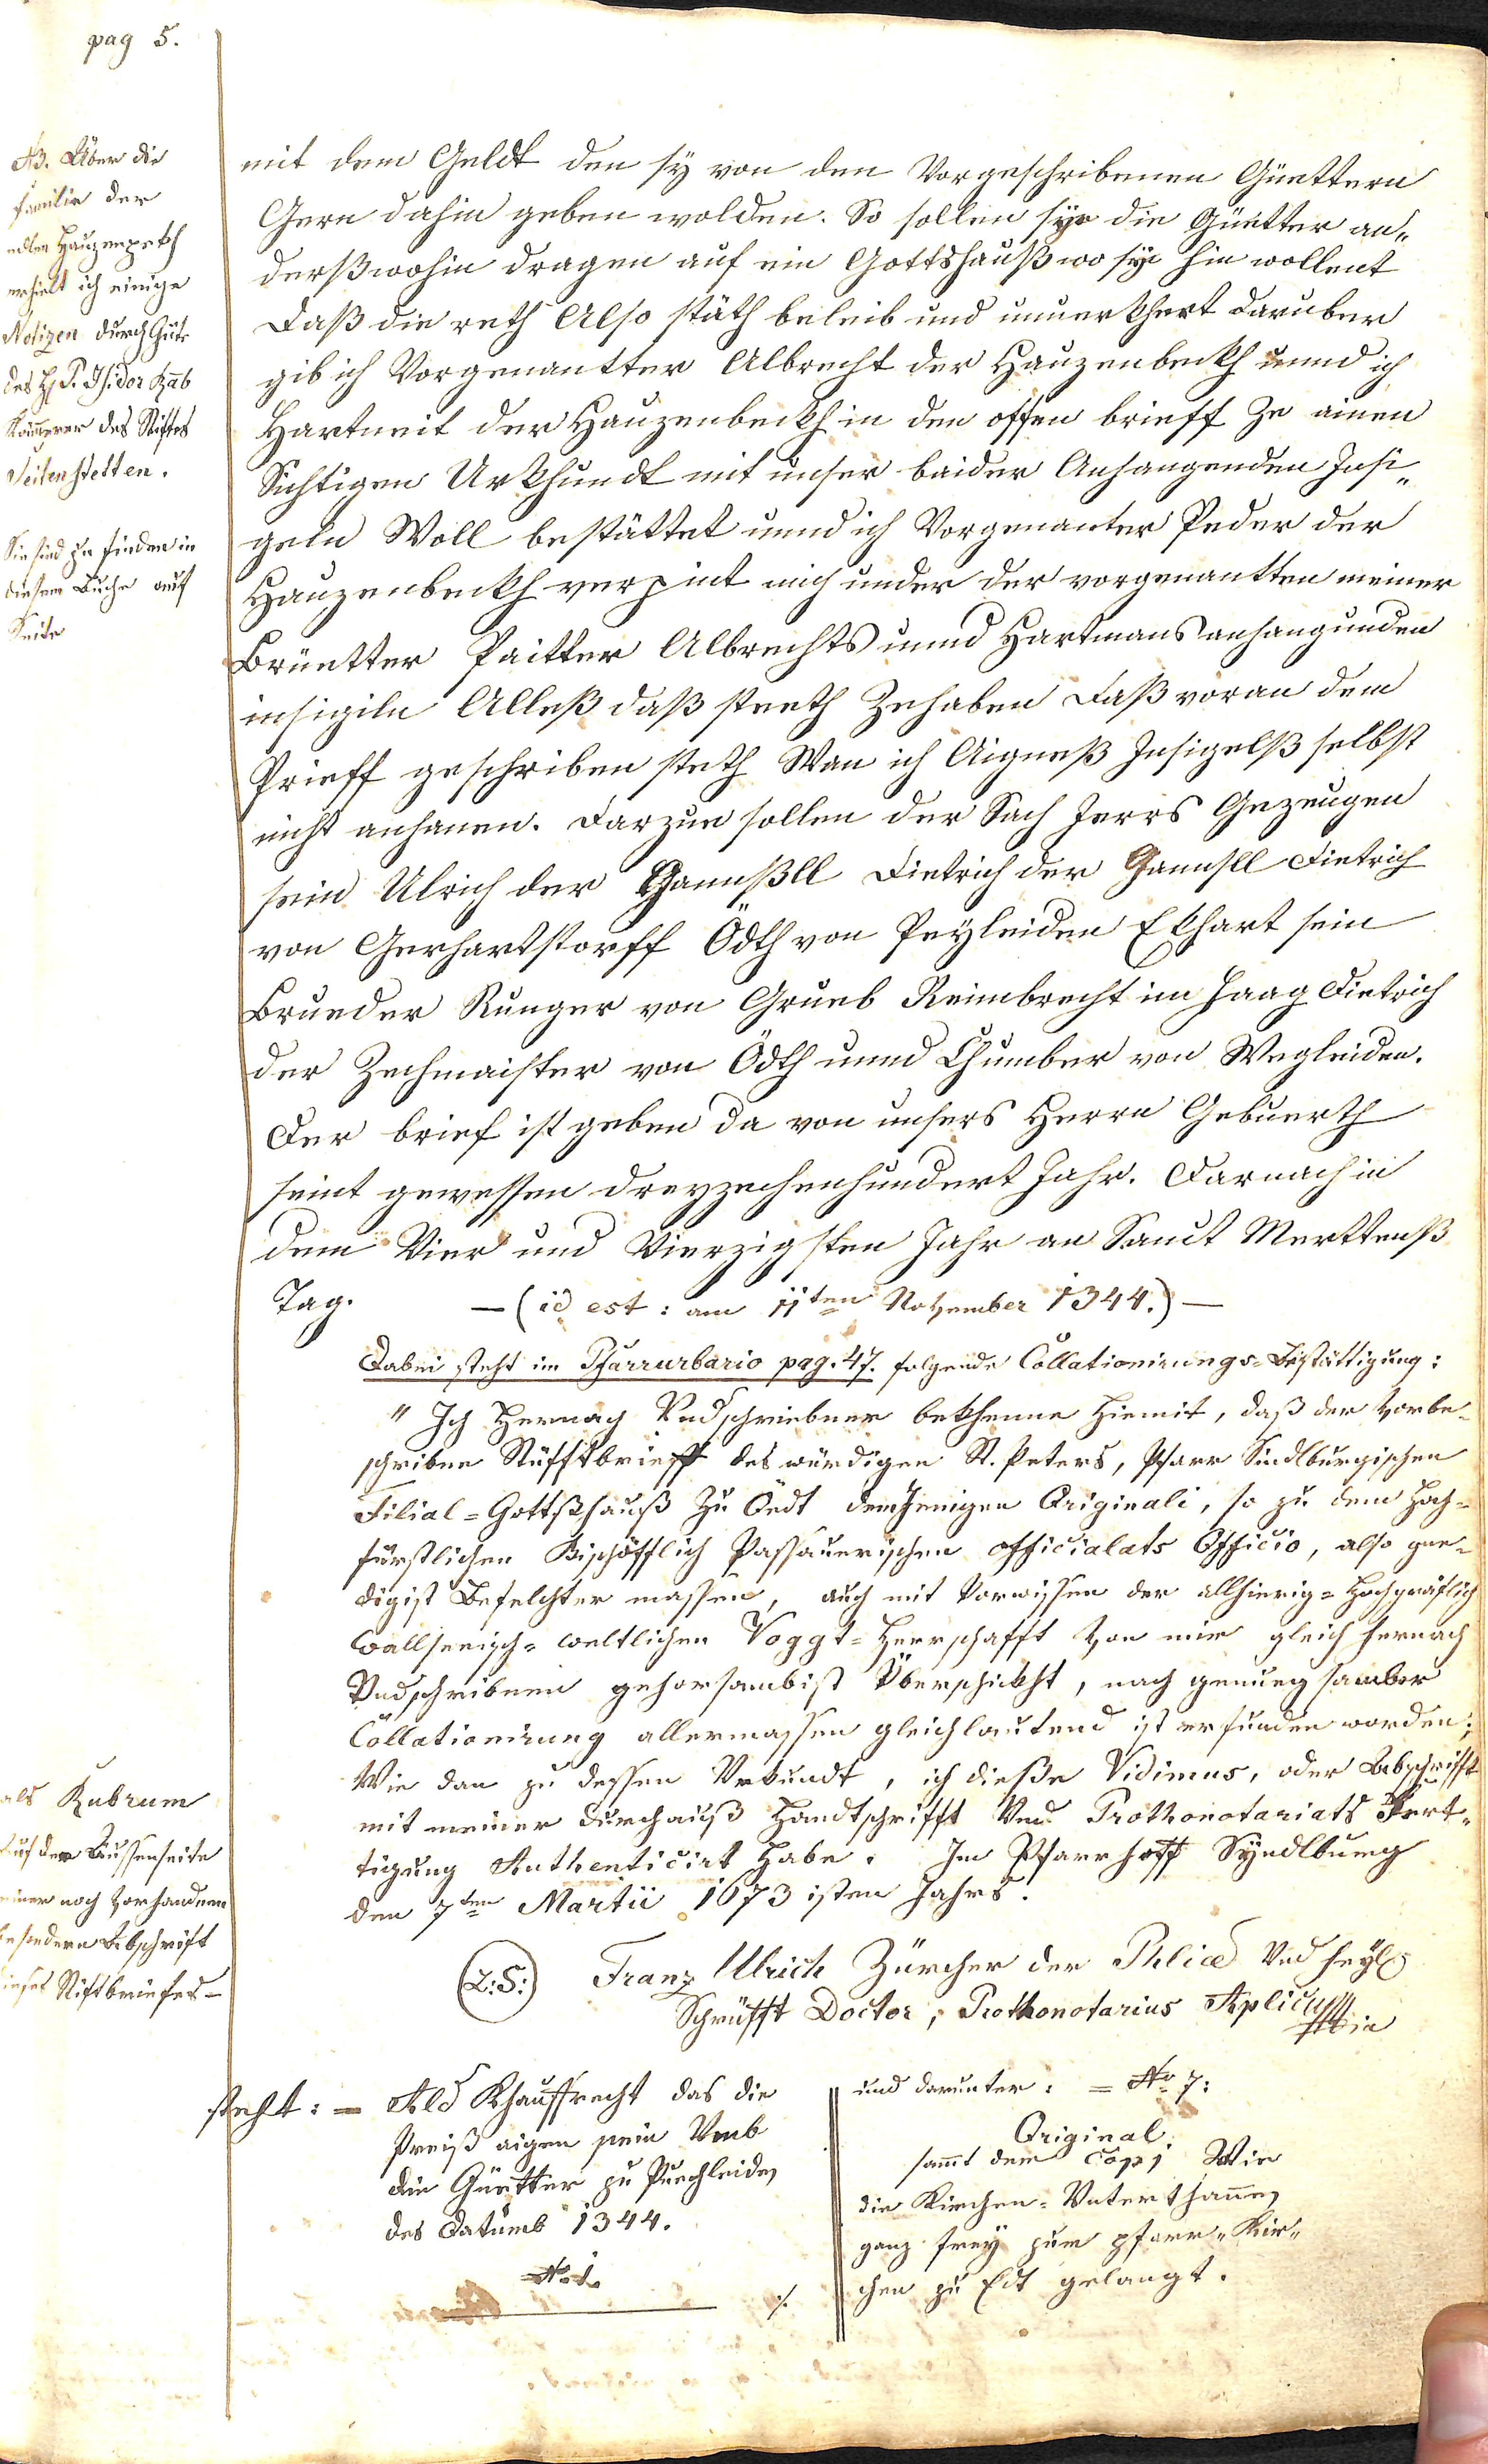 pag 5.
NB. Über die
Familie der
edlen Hauzenpekh
erhielt ich einige
Notizen durch Güte
des H. P. Isidor Rab
Kämmerer des Stiftes
Seitenstetten.
Sie sind zu finden in
diesem Buche auf
Seite
mit dem Geldt den sy von den Vorgeschribenen Güettern
Gern dahin geben wolden. So sollen sye die Güetter an„
derßwohin dragen auf ein Gottshauß wo sye hin wollent
Daß die reth Also stäth beleib und unuerkhert daruber
gib ich Vorgenantter Albrecht der Hauzenbeckh unnd ich
Hartneit der Hauzenbeckh in den offen brieff Ze ainen
Sichtigen Urkhundt mit unser baider Anhangenden Insi„
geln Woll bestättet unnd ich Vorgenanter Peder der
Hauzenbeckh verpint mich under der vorgenantten meiner
Brüetter Paitter Albrechts unnd Hartmans anhangunden
insigiln Alleß daß steeth Zehaben Daß voran dem
Prieff geschriben steth Wan ich Aigneß Insigelß selbst
nicht anhanen. Darzue sollen der Sach Jerrs Gezeugen
sein Ulrich der Gannßll Dietrich der Gannsll Dietrich
von Gerhartstorff Ödth von Peyleiden Ekhart sein
Brueder Runger von Grueb Reimbrecht im Haag Dietrich
der Zechmaister von Ödth unnd Chumber von Wegleiden.
Der brief ist geben da von unsers Herrn Gebuerth
seint gewessen dreyzechenhundert Jahr. Darnach in
dem Vier und Vierzigsten Jahr an Sanct Merttenß
Tag. — (id est: am 11ten November 1344.) —
Dabei steht im Pfarrurbario pag. 47. folgende Collationirungs-Bestättigung:
" Ich Hernach Undschriebner bekhenne Hiemit, daß der vorbe-
schribne Stüfftbrieff des würdigen St. Peters, Pfarr Sindlburgischen
Filial-Gottßhauß Zu Öedt demJenigen Originali, so zu dem Hoch-
fürstlichen Bischöfflich Passauerischen officialats Officio, also gne-
digist Befelchter massen, auch mit Vorwissen der allhierig-Hochgräflich
Wallseeisch-weltlichen Voggt-Herrschafft von mir gleich hernach
Undschribnen gehorsambist Überschickht, nach genueg samber
Collationirung allermassen gleichlautend ist erfunden worden;
Wie dan zu dessen Urkundt, ich dieße Vidimus, oder Abschrifft
mit meiner durchauß Handtschrifft Und Prothonotariats Fert„
tigung Authenticirt Habe. Im Pfarrhoff Syndlburg
den 7ten Martii 1673 isten Jahrs.
(L:S:) Franz Ulrich Zürcher der Phliae Und heyl
Schrüfft Doctor, Prothonotarius Aplicus
als Rubrum
auf der Aussenseite
einer noch vorhandenen
besondern Abschrift
dieses Stiftbriefes -
steht: = Ald Khauffrecht das die
Preiß aigen sein Umb
die Güetter zu Puechleiden
des Datumb 1344.
No 1.
./.
und darunter: = No 7:
Original.
sammt dem Copi Wie
die Kirchen-Unterthannen
ganz frey zum pfarr„Kir„
chen zu Edt gelangt.